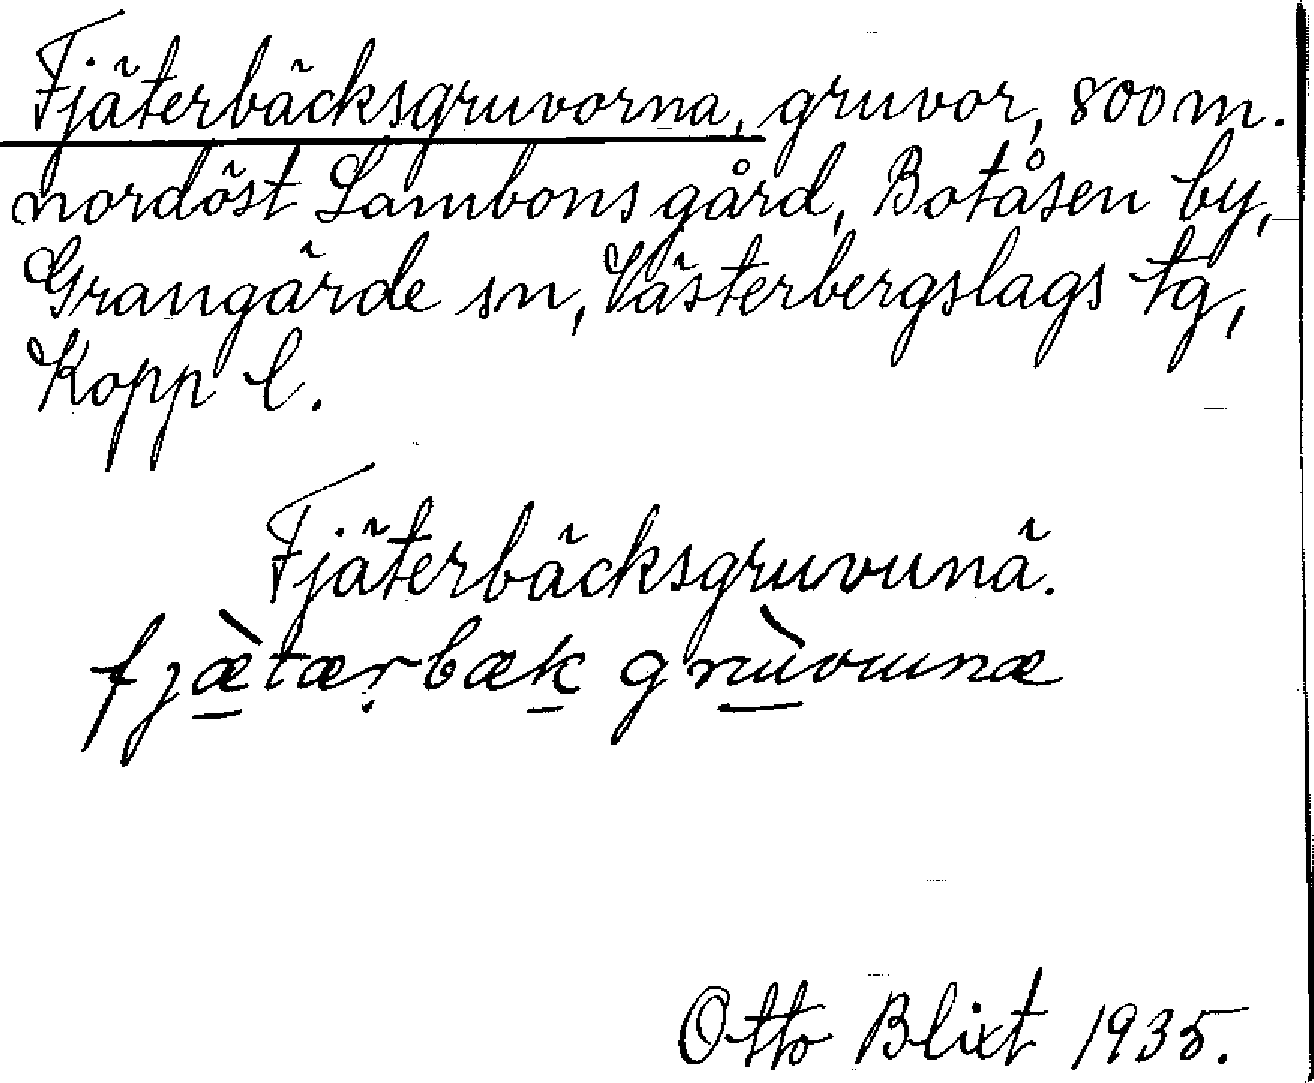 Fjäterbäcksgruvorna, gruvor, 800 m.
nordöst Lambons gård, Botåsen by,
Grangärde sn, Västerbergslags tg,
Kopp l.
Fjäterbäcksgruvunä.
fjæ̀tærbæk grùvunæ
Otto Blixt 1935.